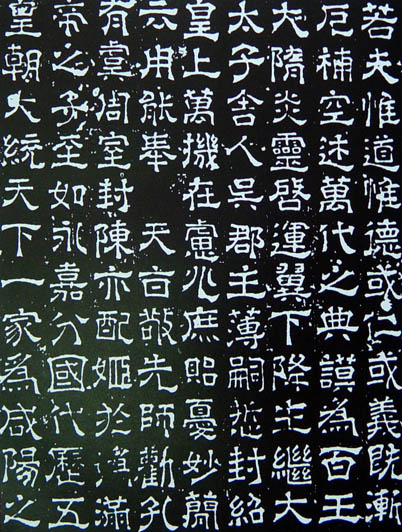 若夫惟道惟德或仁或義既漸
補空述萬代之典謨為百王
大隋炎靈啓運翼下降生繼大
太子舍人吳郡主薄嗣悊封紹
皇上萬機在慮兆庶貽憂妙簡
云用能奉 天旨敬先師勸孔
有臺周室封陳亦配姬於滿
帝之子至如永嘉分國代歷五
皇朝大統天下一家為咸陽之